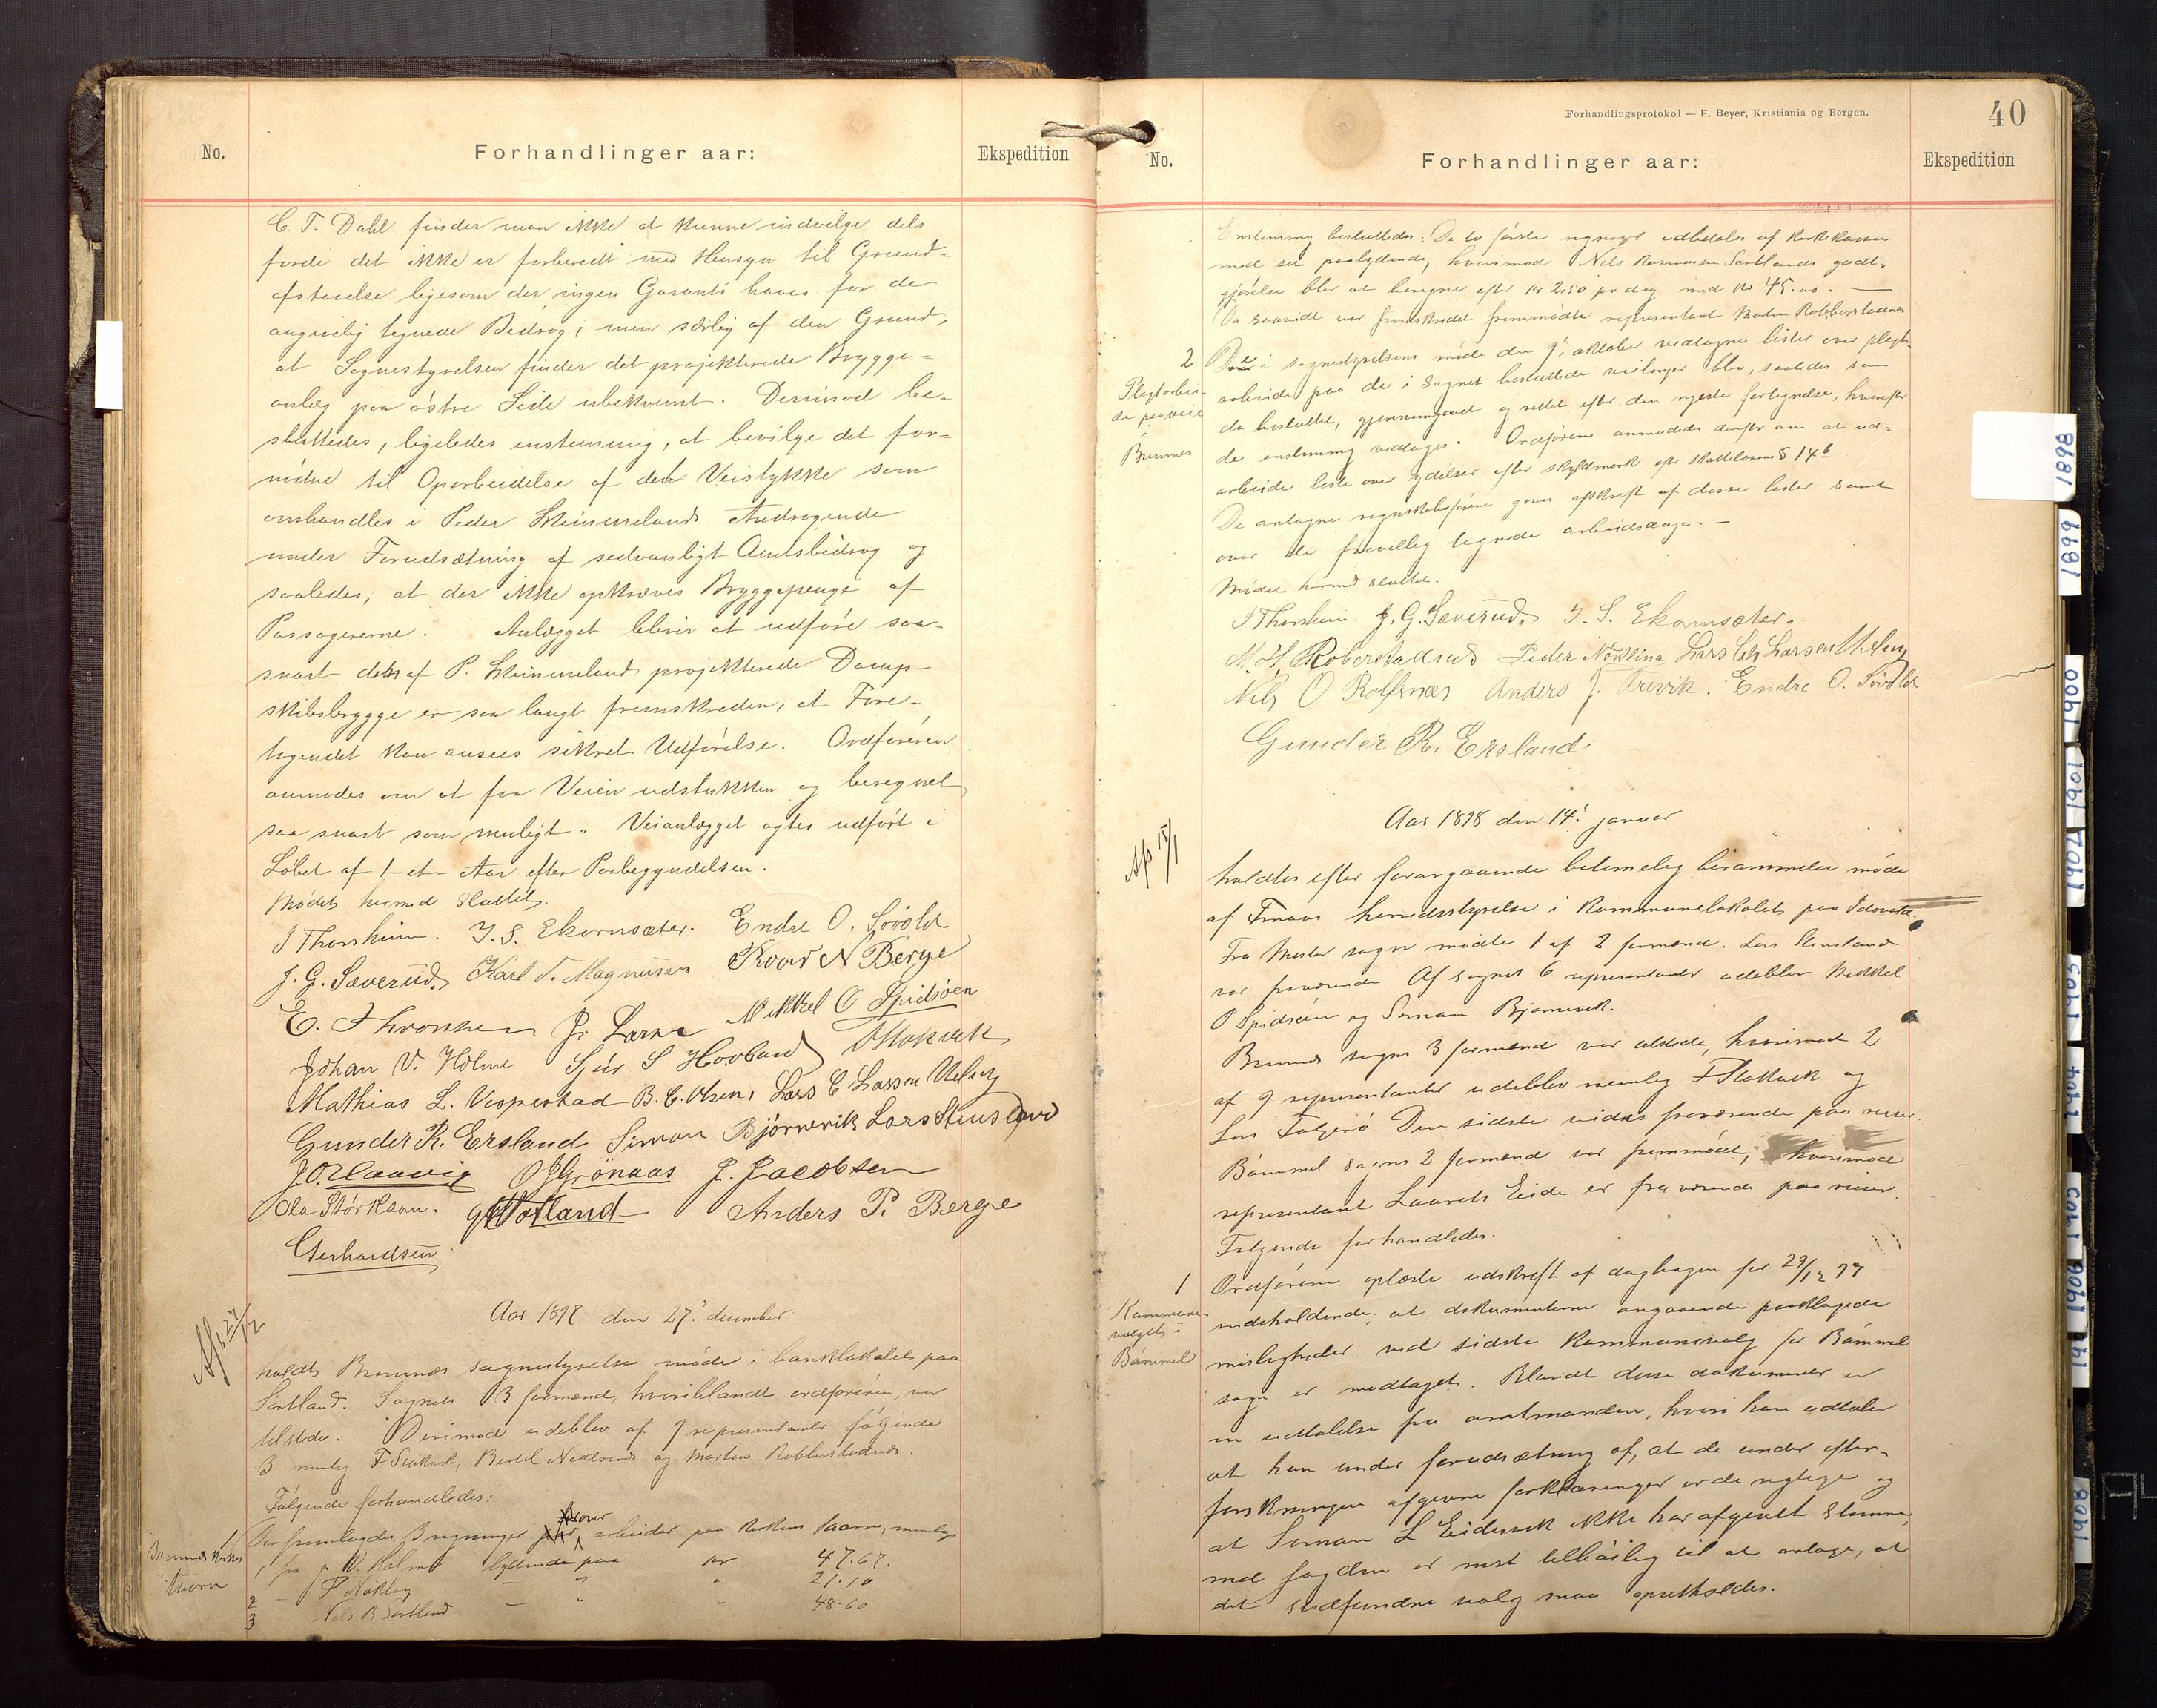 No.
Forhandlinger aar:
Ekspedition
C. T. Dahl finder man ikke at kunne indvilge dels
fordi det ikke er forberedt med Hensyn til Grund-
afstaaelse ligesom der ingen Garanti haves for de
angivelig tegnede Bidrag; men særlig af den Grund,
at Sognestyrelsen finder det projekterede Brygge-
anlæg paa østre Side ubekvemt. Derimod be-
sluttedes, ligeledes enstemmig, at bevilge det for-
nødne til Oparbeidelse af det Veistykke som
omhandles i Peder Steinnelands Andragende
under Forudsætning af sedvanligt Amtsbidrag og
saaledes, at der ikke opkræves Bryggepenge af
Passagererne. Anlægget bliver at udføre saa-
snart den af P. Steinneland projekterede Damp-
skibsbrygge er saa langt fremskreden, at Fore-
tagendet kan ansees sikret Udførelse. Ordføreren
anmodes om at faa Veien udstukken og beregnet
saa snart som muligt. Veianlægget agtes udført i
Løbet af 1-et- Aar efter Paabegyndelsen.
Mødet hermed sluttet.
J Thorsheim. J. S. Ekornsæter. Endre O. Søvold
J. G. Sæverud. Karl T. Magnusen Roar N Berge
E. Thronsen Mikkel O Spidsøen
Johan V. Holme Sjur S Hovland F Stokvik
Mathias L. Vespestad B. C. Olsen, Lars C Larsen Uelvig
Gunder R. Ersland Simon Bjørnevik Lars Stensland
J. O. Haavig O J Grönaas J. Jacobsen
Ola Størkson. Anders P. Berge
Gerhardsen
Afs 27/12
Aar 1897 den 27' desember
holdts Bremnes sognestyrelse møde i banklokalet paa
Sørtland. Sognets 3 formænd, hvoriblandt ordføreren, var
tilstede. Derimod udeblev af 9 representanter følgende
3 nemlig F Stokvik, Bertel Nekkevik og Morten Robberstadnes.
Følgende forhandledes:
1
Bremnes kirkes
taarn
Der fremlagdes 3 regninger for over arbeider paa kirkens taarn, nemlig
1 fra J. V. Holme lydende paa kr 47.67.
2 - P Nøkling - " " 21.10
3 Nels R Sørtland - " " 48.60
Forhandlingsprotokol — F. Beyer, Kristiania og Bergen.
40
No.
Forhandlinger aar:
Ekspedition
Enstemmig besluttedes: De to første regninger udbetales af kirkekassen
med sit paalydende, hvorimod Nels Rasmussen Sørtlands godt-
gjørelse blev at beregne efter kr 2.50 pr dag med kr 45.00. —
Da saavidt var fremskredet fremmødte representant Morten Robberstadnes
2
Pligtarbei-
de paa veie
i
Bremnes
De i sognestyrelsens møde den 9' oktober vedtagne lister over pligt-
arbeide paa de i sognet besluttede veilanger blev, saaledes som
da besluttet, gjennemgaaet og rettet efter den nyeste fortegnelse, hvorefter
de enstemmig vedtages. Ordføreren anmodedes derefter om at ud-
arbeide liste over ydelser efter skyldmark efter skatteloven § 14 b.
De antagne regnskabsførere gives afskrift af disse lister samt
over de frivillig tegnede arbeidsdage. —
Mødet hermed sluttet.
J Thorsheim. J. G. Sæverud. J. S. Ekornsæter.
M. H. Roberstadnes Peder Nökling Lars Ch Larsen Uelvig
Nils O Rolfsnæs Anders J. Årevik. Endre O. Søvold
Gunder R. Ersland.
Afs 15/1
Aar 1898 den 14' januar
holdtes efter forangaaende betimelig berammelse møde
af Finaas herredsstyrelse i kommunelokalet paa Idevold.
Fra Moster sogn mødte 1 af 2 formænd. Lars Stensland
var fraværende Af sognets 6 representanter udeblev Mikkel
O Spidsøen og Simon Bjørnevik.
Bremnes sogns 3 formænd var tilstede, hvorimod 2
af 9 representanter udeblev nemlig F Stokvik og
Lars Folgerø. Den sidste vides fraværende paa reiser.
Bømmel sogns 2 formænd var fremmødt, hvorimod
representant Laurits Eide er fraværende paa reiser.
Følgende forhandledes.
1
Kommune-
valget i
Bømmel
Ordføreren oplæste udskrift af dagbogen for 23/12 97
indeholdende, at dokumenterne angaaende paaklagede
misligheder ved sidste kommunevalg for Bømmel
sogn er modtaget. Blandt disse dokumenter er
en udtalelse fra amtmanden, hvori han udtaler
at han under forudsætning af, at de under efter-
forskningen afgivne forklaringer er de rigtige og
at Simon L Eidesvik ikke har afgivet stemme,
med fogden er mest tilbøielig til at antage, at
det stedfundne valg maa opretholdes.
1898
1899
1900
1901
1902
1903
1904
1905
1906
1908